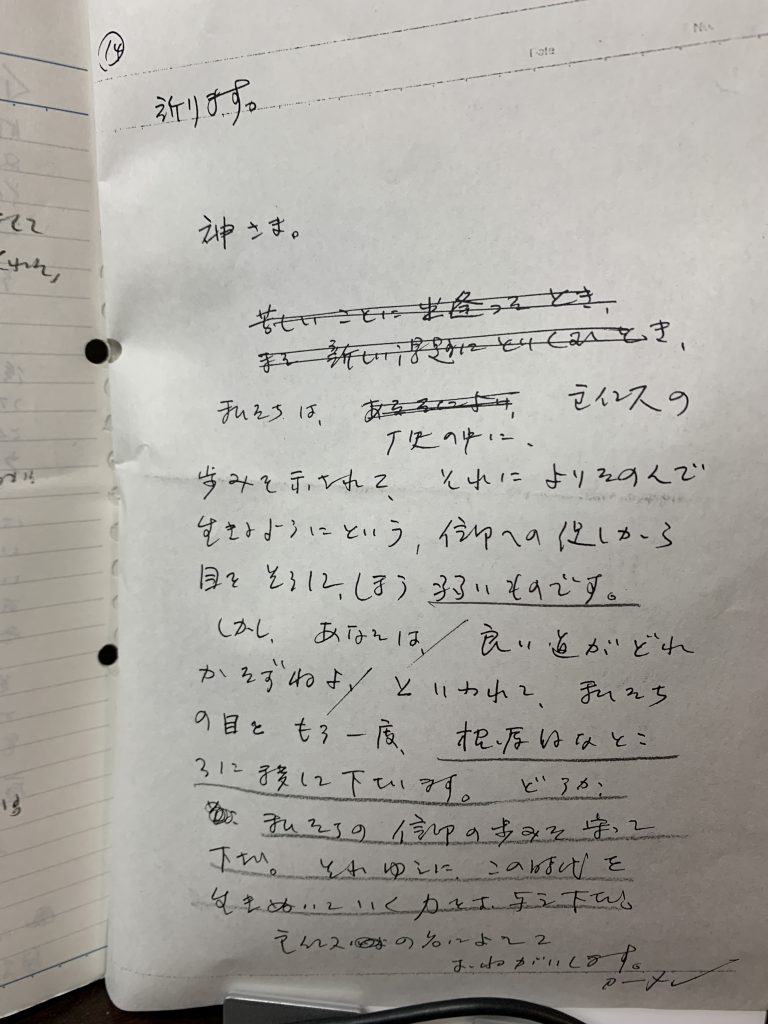 14
Date
No.
祈ります。
神さま。
苦しいことに出逢ったとき、
また 新しい課題に とき、
私たちは、 主イエスの
歴史の中に、
歩みを示されて、それによりたのんで
生きるようにという、信仰への促しから
目をそらして、しまう 弱いものです。
しかし、あなたは、／良い道がどれ
かたずねよ、／といわれて、私たち
の目をもう一度、根底はなとこ
ろに移して下さいます。どうか、
私たちの信仰の歩みを守って
下さい。それゆえに、この時代を
生きぬいていく力をお与え下さい。
主イエスの名によって
おねがいします。
アーメン